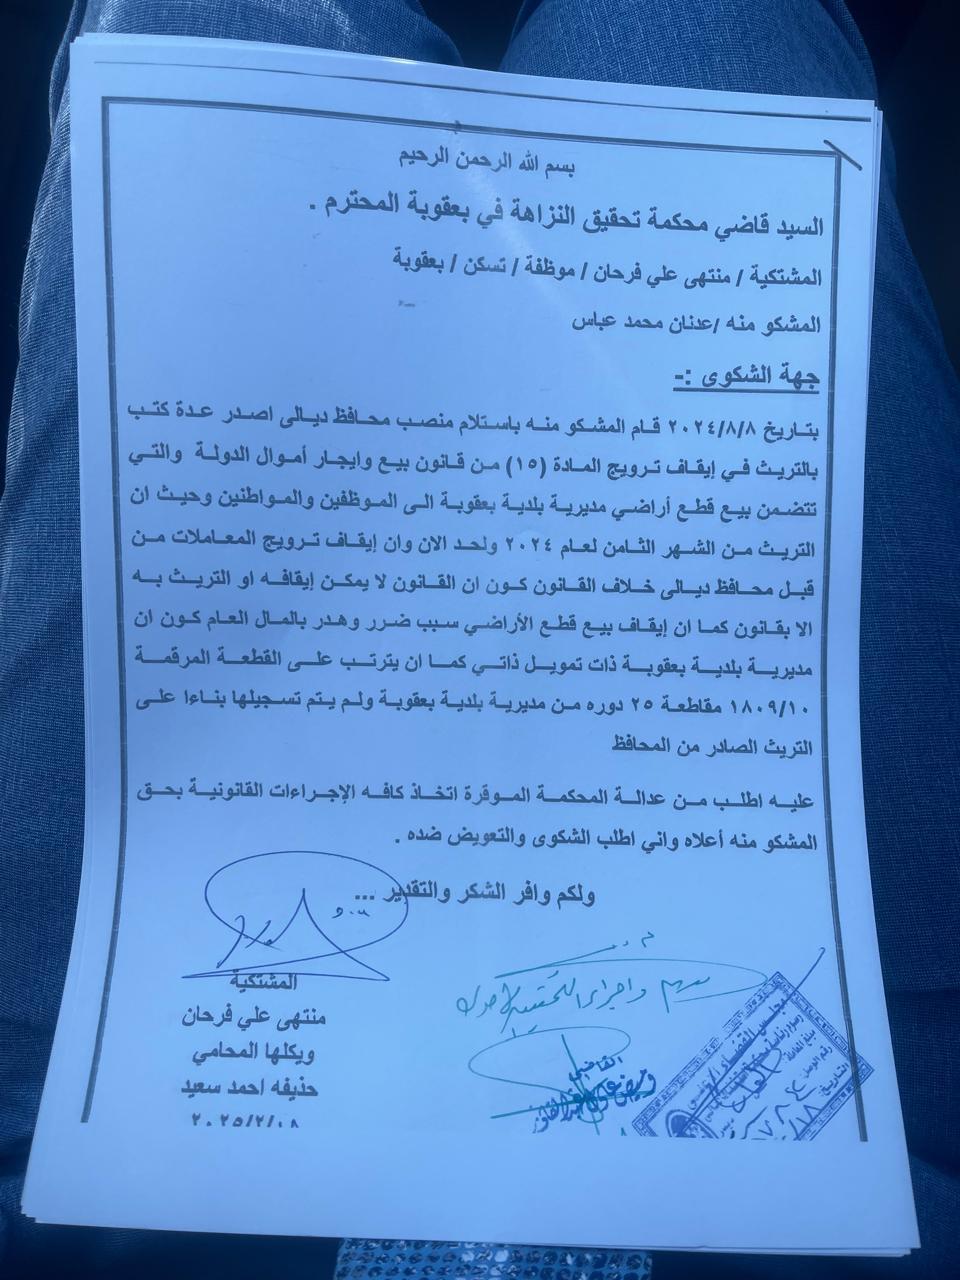 بسم الله الرحمن الرحيم
السيد قاضي محكمة تحقيق النزاهة في بعقوبة المحترم .
المشتكية / منتهى علي فرحان / موظفة / تسكن / بعقوبة
المشكو منه /عدنان محمد عباس
جهة الشكوى :-
بتاريخ ٢٠٢٤/٨/٨ قام المشكو منه باستلام منصب محافظ ديالى اصدر عدة كتب
بالتريث في إيقاف ترويج المادة (١٥) من قانون بيع وايجار أموال الدولة والتي
تتضمن بيع قطع أراضي مديرية بلدية بعقوبة الى الموظفين والمواطنين وحيث ان
التريث من الشهر الثامن لعام ٢٠٢٤ ولحد الان وان إيقاف ترويج المعاملات من
قبل محافظ ديالى خلاف القانون كون ان القانون لا يمكن إيقافه او التريث به
الا بقانون كما ان إيقاف بيع قطع الأراضي سبب ضرر وهدر بالمال العام كون ان
مديرية بلدية بعقوبة ذات تمويل ذاتي كما ان يترتب على القطعة المرقمة
١٨٠٩/١٠ مقاطعة ٢٥ دوره من مديرية بلدية بعقوبة ولم يتم تسجيلها بناءا على
التريث الصادر من المحافظ
عليه اطلب من عدالة المحكمة الموقرة اتخاذ كافه الإجراءات القانونية بحق
المشكو منه أعلاه واني اطلب الشكوى والتعويض ضده .
ولكم وافر الشكر والتقدير ...
المشتكية
منتهى علي فرحان
ويكلها المحامي
حذيفه احمد سعيد
٢٠٢٥/٢/٠٨
القاضي
مجلس القضاء